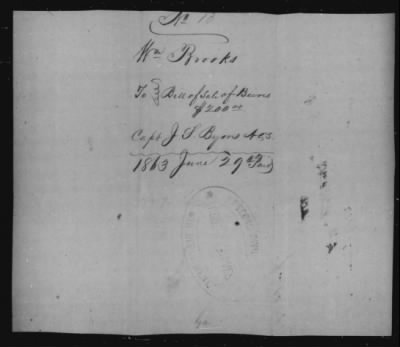 No 13
Wm Brooks
To } Bill of Sale of Beeves
$200.00
Capt J. S. Byers ACS
1863 June 29th Paid